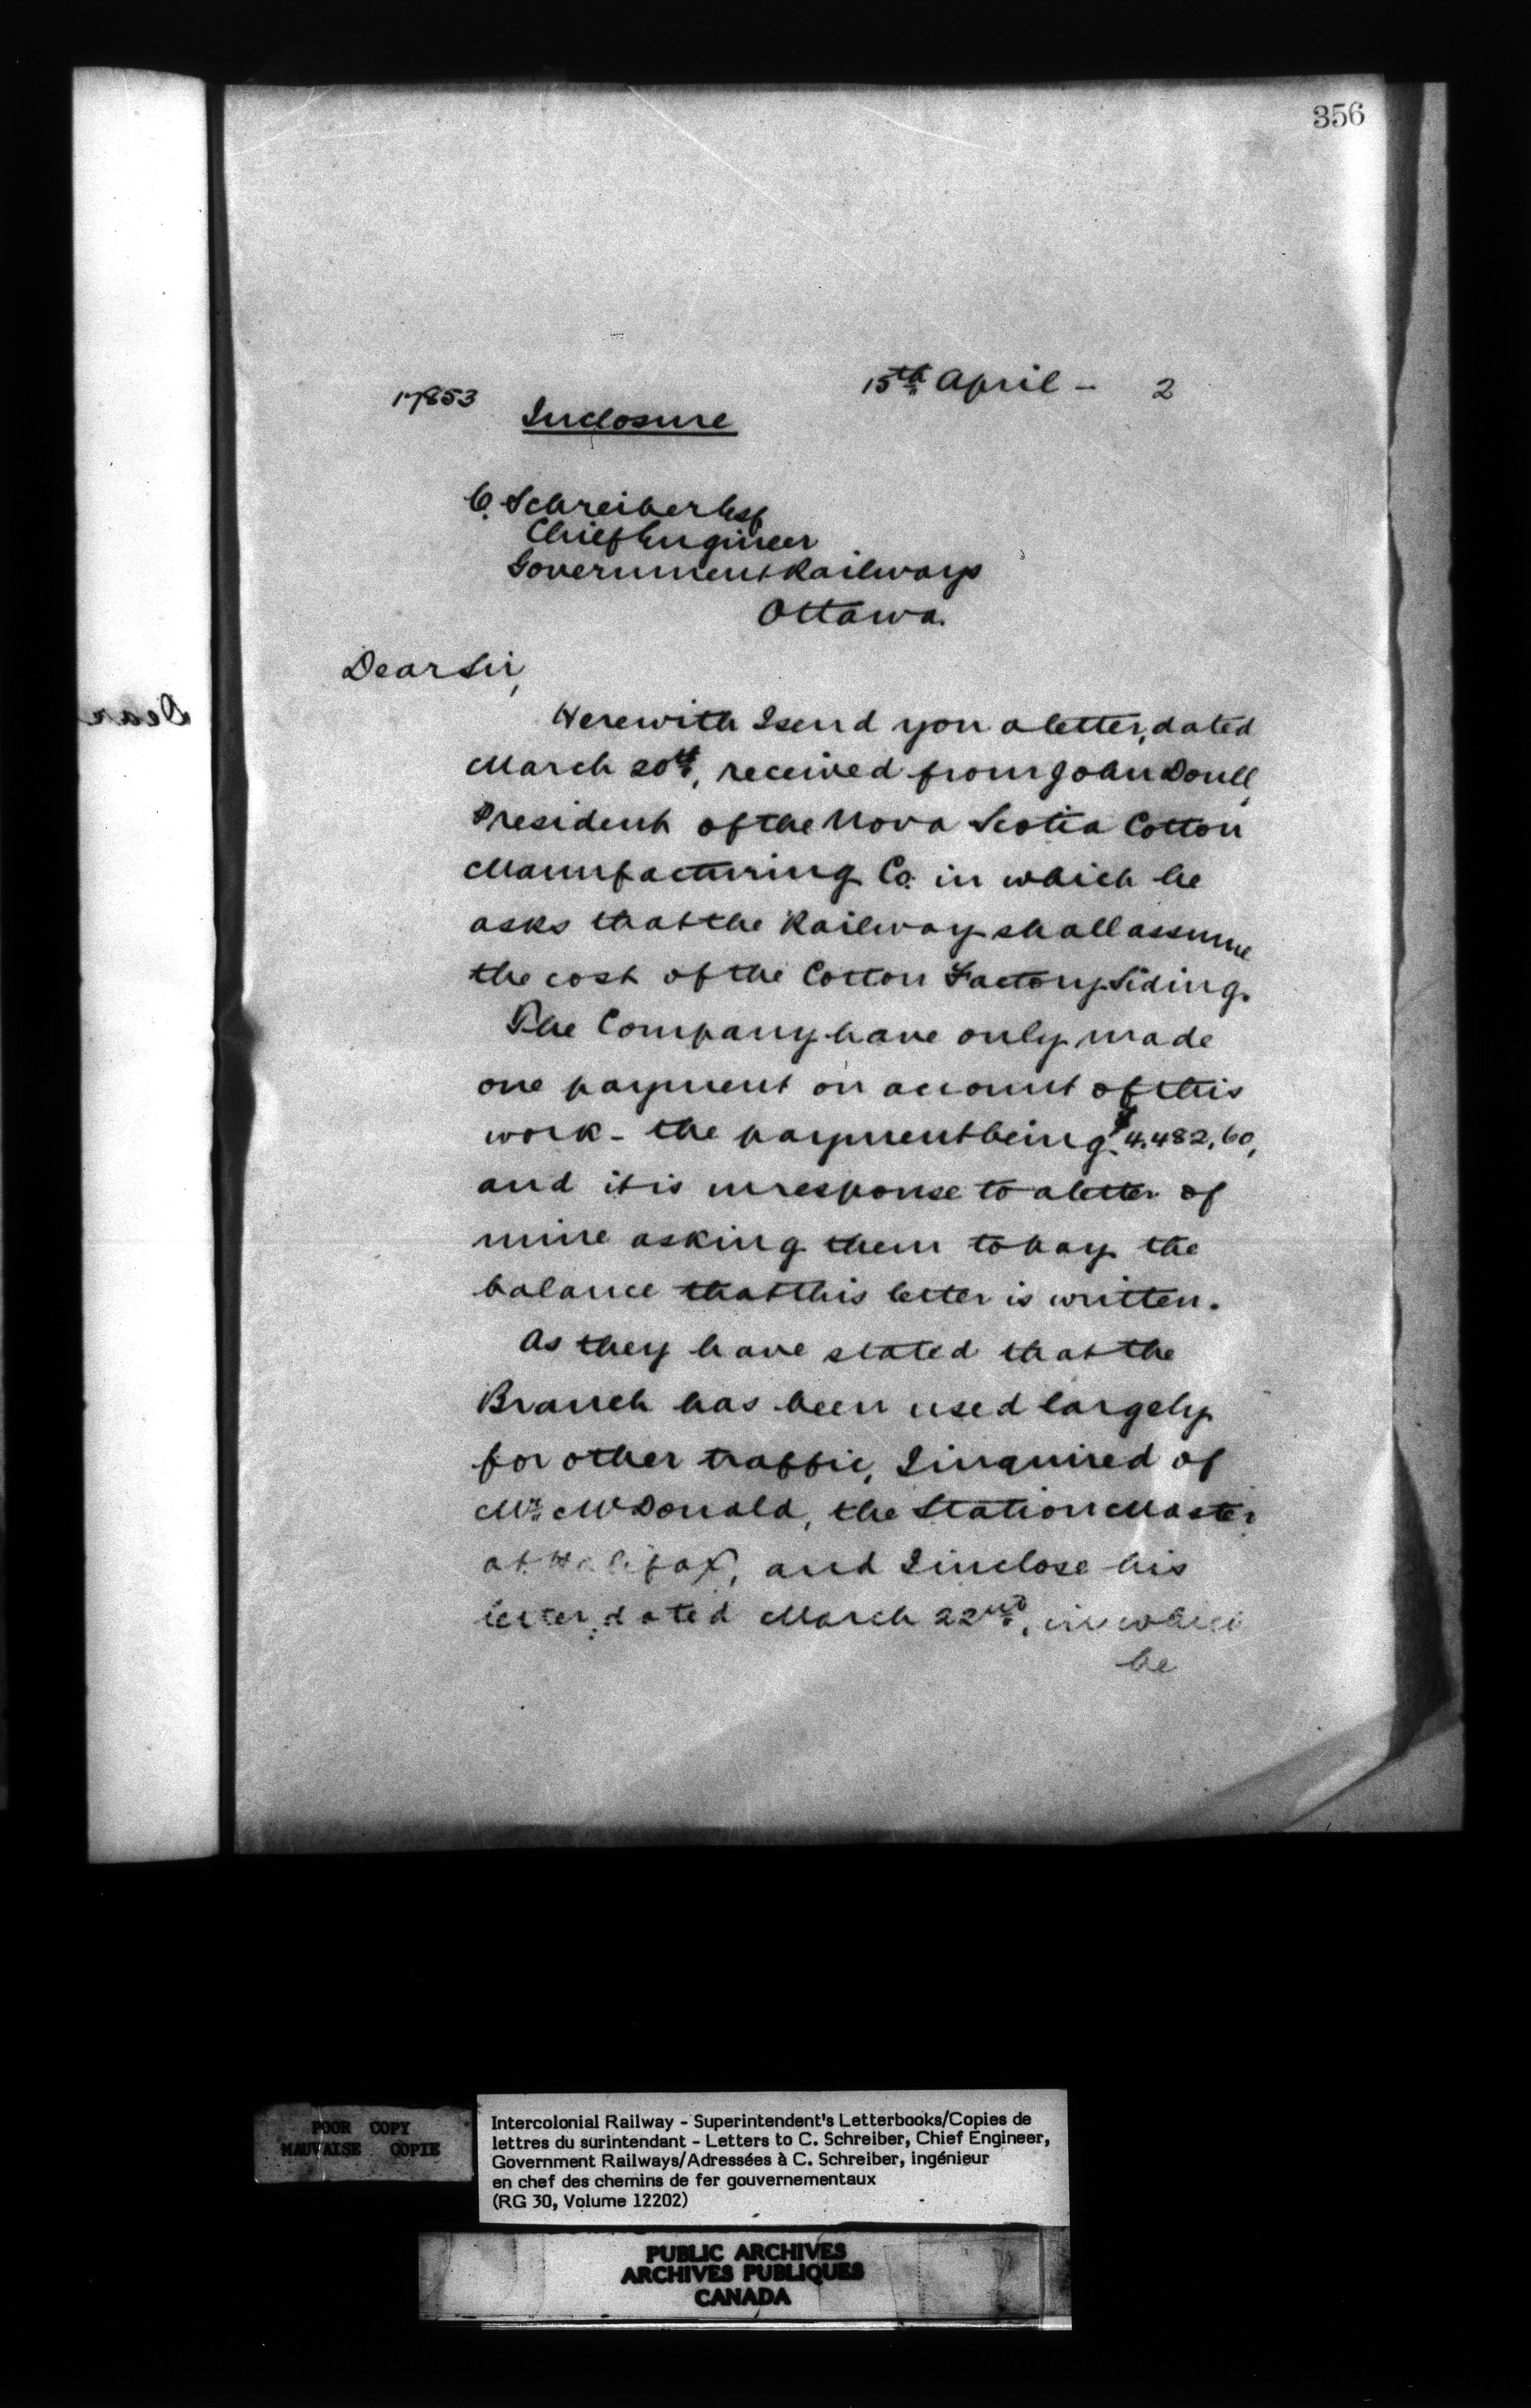 356
15th April - 2
17853
Inclosure
C. Schreiber Esq
Chief Engineer
Government Railways
Ottawa.
Dear Sir,
Dear
Herewith I send you a letter, dated
March 20th, received from John Doull,
President of the Nova Scotia Cotton
Manufacturing Co. in which he
asks that the Railway shall assume
the cost of the Cotton Factory Siding.
The Company have only made
one payment on account of this
work - the payment being $4.482,60,
and it is in response to a letter of
mine asking them to pay the
balance that this letter is written.
As they have stated that the
Branch has been used largely
for other traffic, I inquired of
Mr. McDonald, the Station Master
at Halifax, and I inclose his
letter, dated March 22nd, in which
he
POOR COPY
MAUVAISE COPIE
Intercolonial Railway - Superintendent's Letterbooks/Copies de
lettres du surintendant - Letters to C. Schreiber, Chief Engineer,
Government Railways/Adressées à C. Schreiber, ingénieur
en chef des chemins de fer gouvernementaux
(RG 30, Volume 12202)
PUBLIC ARCHIVES
ARCHIVES PUBLIQUES
CANADA